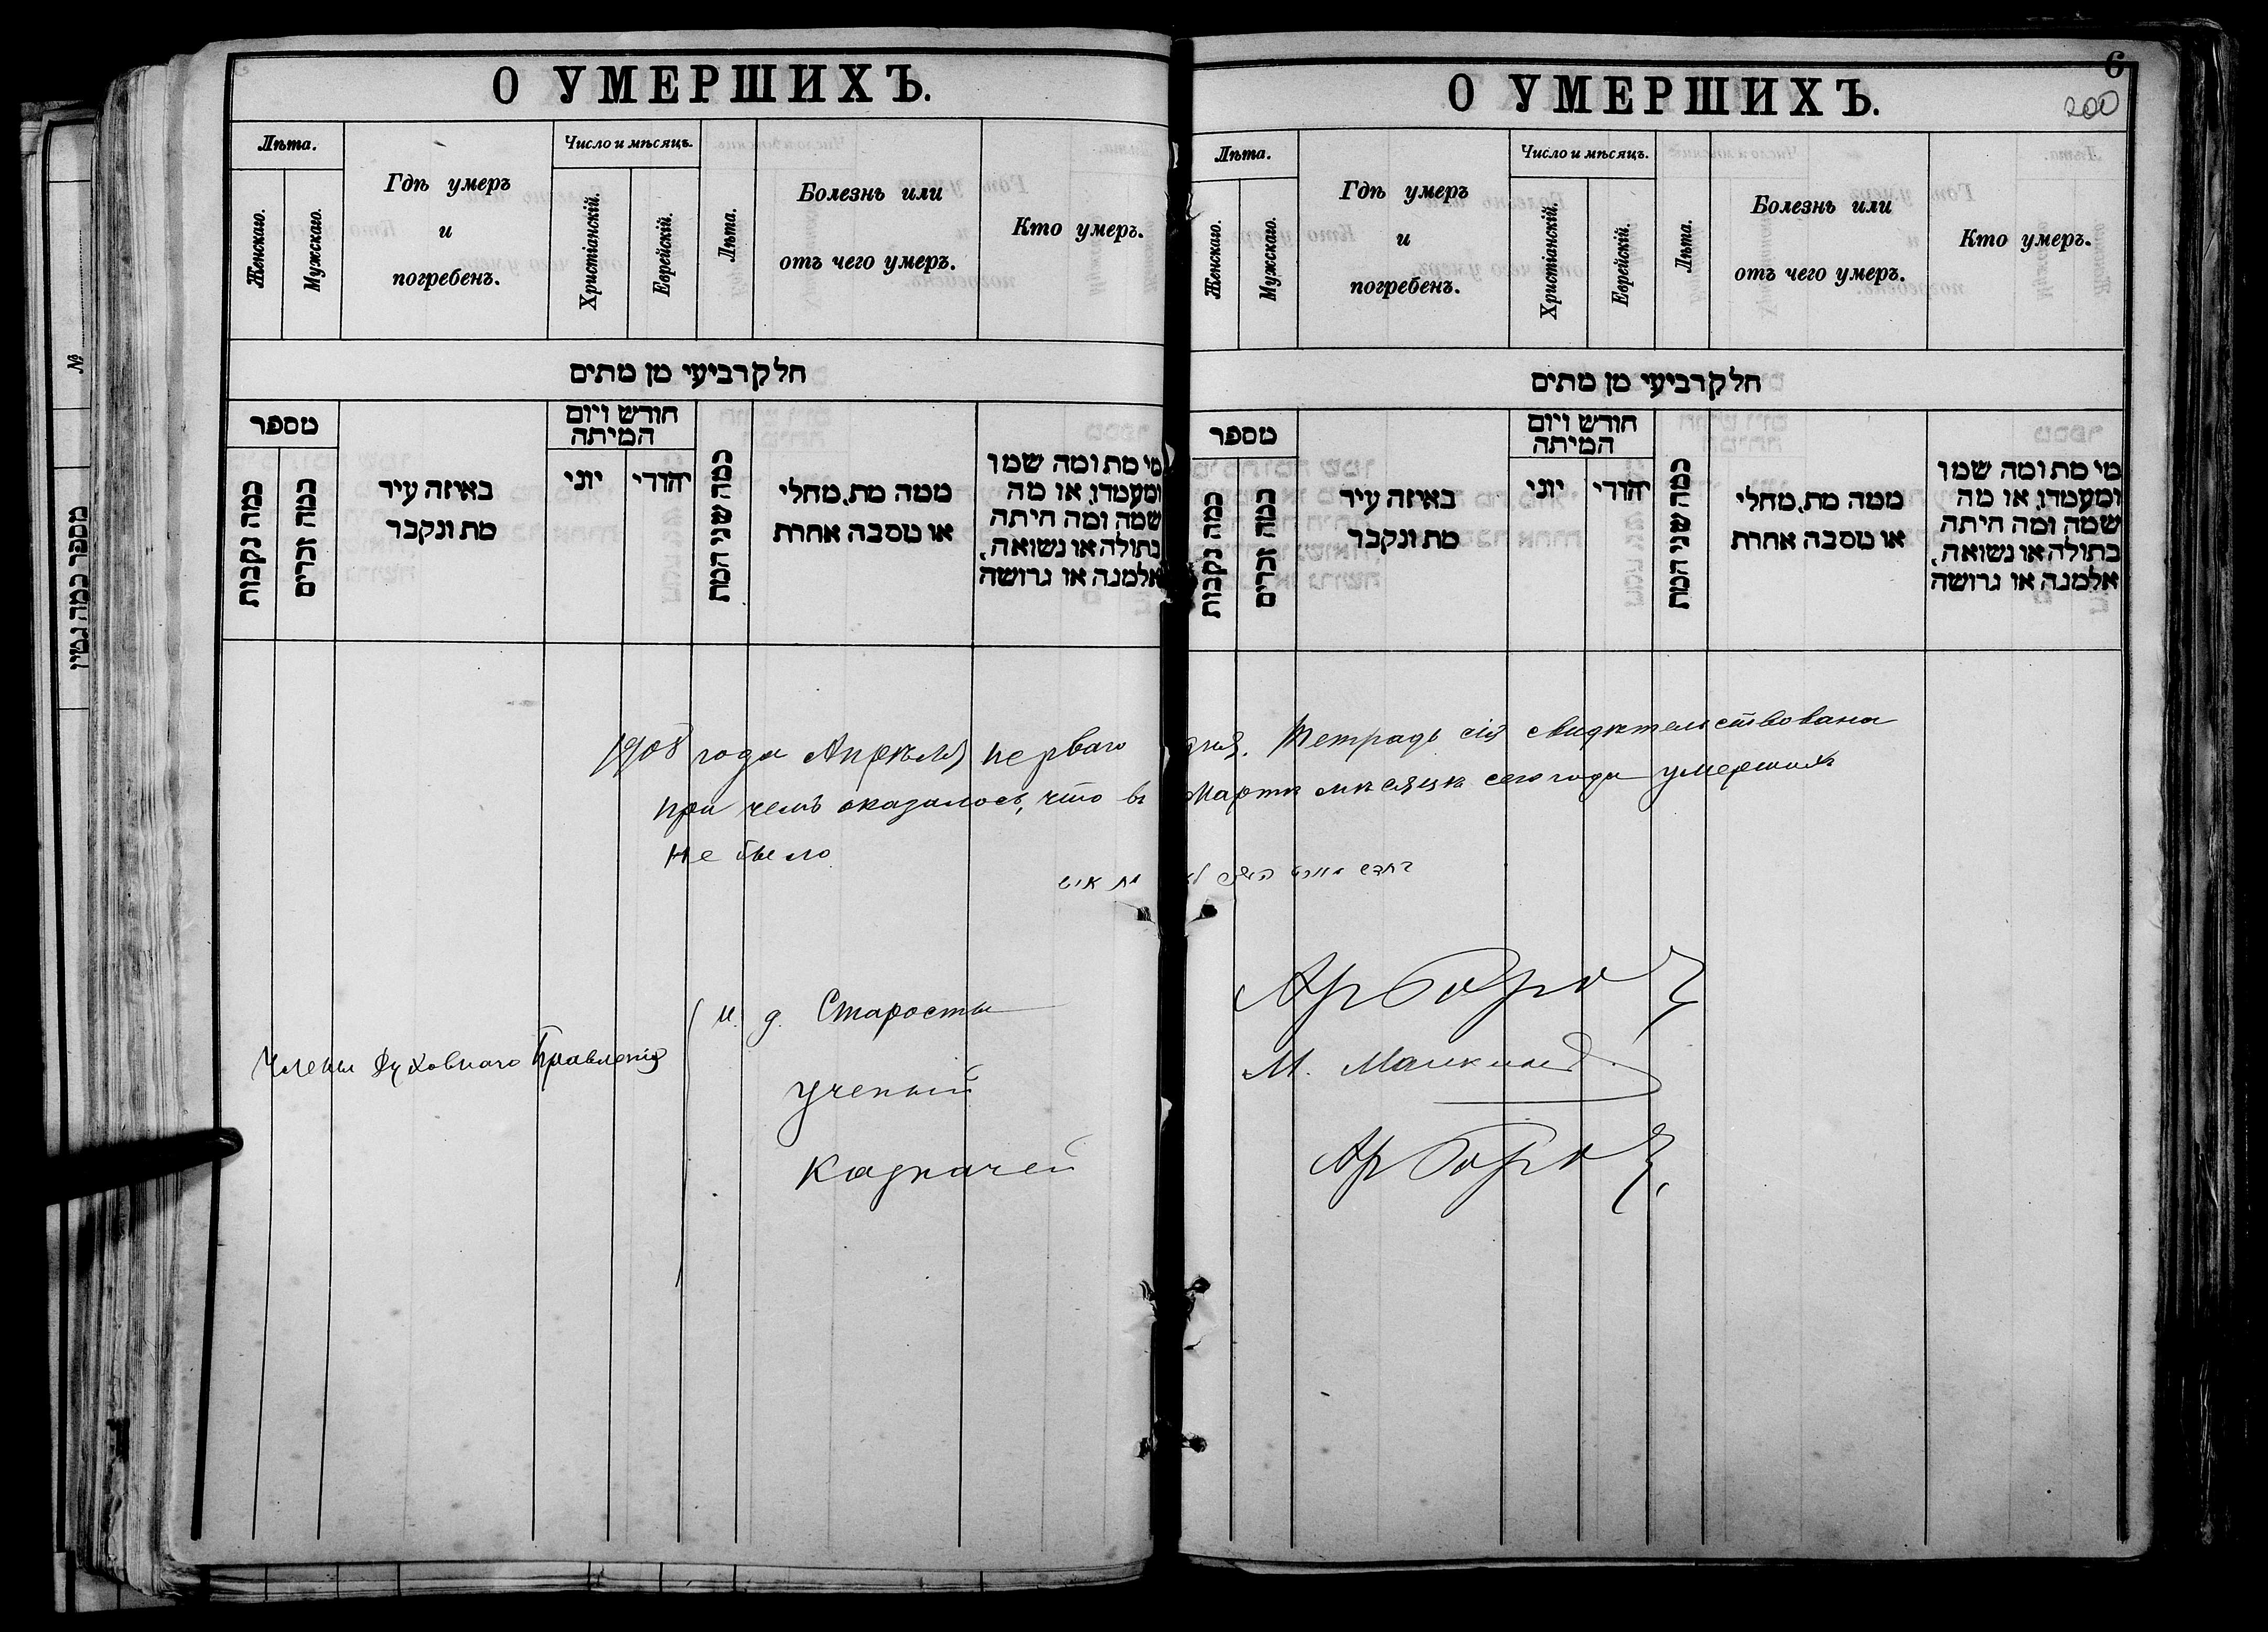 О УМЕРШИХЪ.
Лѣта.
Женскаго.
Мужскаго.
Гдѣ умеръ
и
погребенъ.
Число и мѣсяцъ.
Христіанскій.
Еврейскій.
Лѣта.
Болезнь или
отъ чего умеръ.
Кто умеръ.
חלק רביעי מן מתים
מספר
כמה נקבות
כמה זכרים
באיזה עיר
מת ונקבר
חודש ויום
המיתה
יוני
יהודי
כמה שני המת
ממה מת, מחלי
או מסבה אחרת
מי מת ומה שמו
ומעמדו, או מה
שמה ומה היתה
בתולה או נשואה,
אלמנה או גרושה
О УМЕРШИХЪ.
6
200
Лѣта.
Женскаго.
Мужскаго.
Гдѣ умеръ
и
погребенъ.
Число и мѣсяцъ.
Христіанскій.
Еврейскій.
Лѣта.
Болезнь или
отъ чего умеръ.
Кто умеръ.
חלק רביעי מן מתים
מספר
כמה נקבות
כמה זכרים
באיזה עיר
מת ונקבר
חודש ויום
המיתה
יוני
יהודי
כמה שני המת
ממה מת, מחלי
או מסבה אחרת
מי מת ומה שמו
ומעמדו, או מה
שמה ומה היתה
בתולה או נשואה,
אלמנה או גרושה
1908 года Апрѣля перваго дня. Тетрадь сія свидѣтельствована
при чемъ оказалось, что въ Мартѣ мѣсяцѣ сего года умершихъ
не было
בחדש מארט לא מת איש
Члены Духовнаго Правленія
И. д. Старосты
Ученый
М.
Казначей
№
מספר כמה גטין